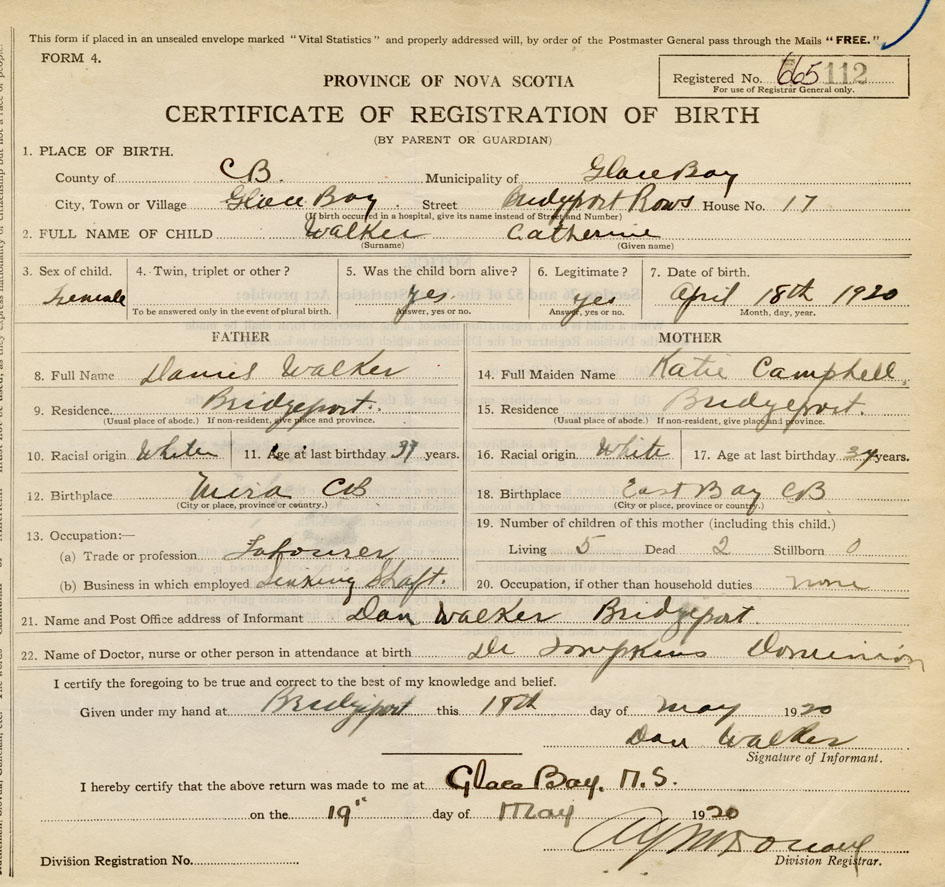 This form if placed in an unsealed envelope marked "Vital Statistics" and properly addressed will, by order of the Postmaster General pass through the Mails "FREE."
FORM 4.
PROVINCE OF NOVA SCOTIA
Registered No. 665 112
For use of Registrar General only.
CERTIFICATE OF REGISTRATION OF BIRTH
(BY PARENT OR GUARDIAN)
1. PLACE OF BIRTH.
County of CB. Municipality of Glace Bay
City, Town or Village Glace Bay. Street Bridgeport Rows House No. 17
(If birth occurred in a hospital, give its name instead of Street and Number)
2. FULL NAME OF CHILD Walker Catherine
(Surname) (Given name)
3. Sex of child. 4. Twin, triplet or other? 5. Was the child born alive? 6. Legitimate? 7. Date of birth.
Female yes yes April 18th 1920
To be answered only in the event of plural birth. Answer, yes or no. Answer, yes or no. Month, day, year.
FATHER MOTHER
8. Full Name Daniel Walker 14. Full Maiden Name Katie Campbell
9. Residence. Bridgeport. 15. Residence Bridgeport.
(Usual place of abode.) If non-resident, give place and province. (Usual place of abode.) If non-resident, give place and province.
10. Racial origin White 11. Age at last birthday 37 years. 16. Racial origin White 17. Age at last birthday years.
12. Birthplace Mira CB 18. Birthplace East Bay CB
(City or place, province or country.) (City or place, province or country.)
19. Number of children of this mother (including this child.)
13. Occupation:—
(a) Trade or profession Labourer Living 5 Dead 2 Stillborn 0
(b) Business in which employed Sinking Shaft. 20. Occupation, if other than household duties none
21. Name and Post Office address of Informant Dan Walker Bridgeport.
22. Name of Doctor, nurse or other person in attendance at birth Dr Tompkins Dominion
I certify the foregoing to be true and correct to the best of my knowledge and belief.
Given under my hand at Bridgeport this 18th day of May 1920
Dan Walker
Signature of Informant.
I hereby certify that the above return was made to me at Glace Bay. N.S.
on the 19" day of May 1920
Division Registration No.
Division Registrar.